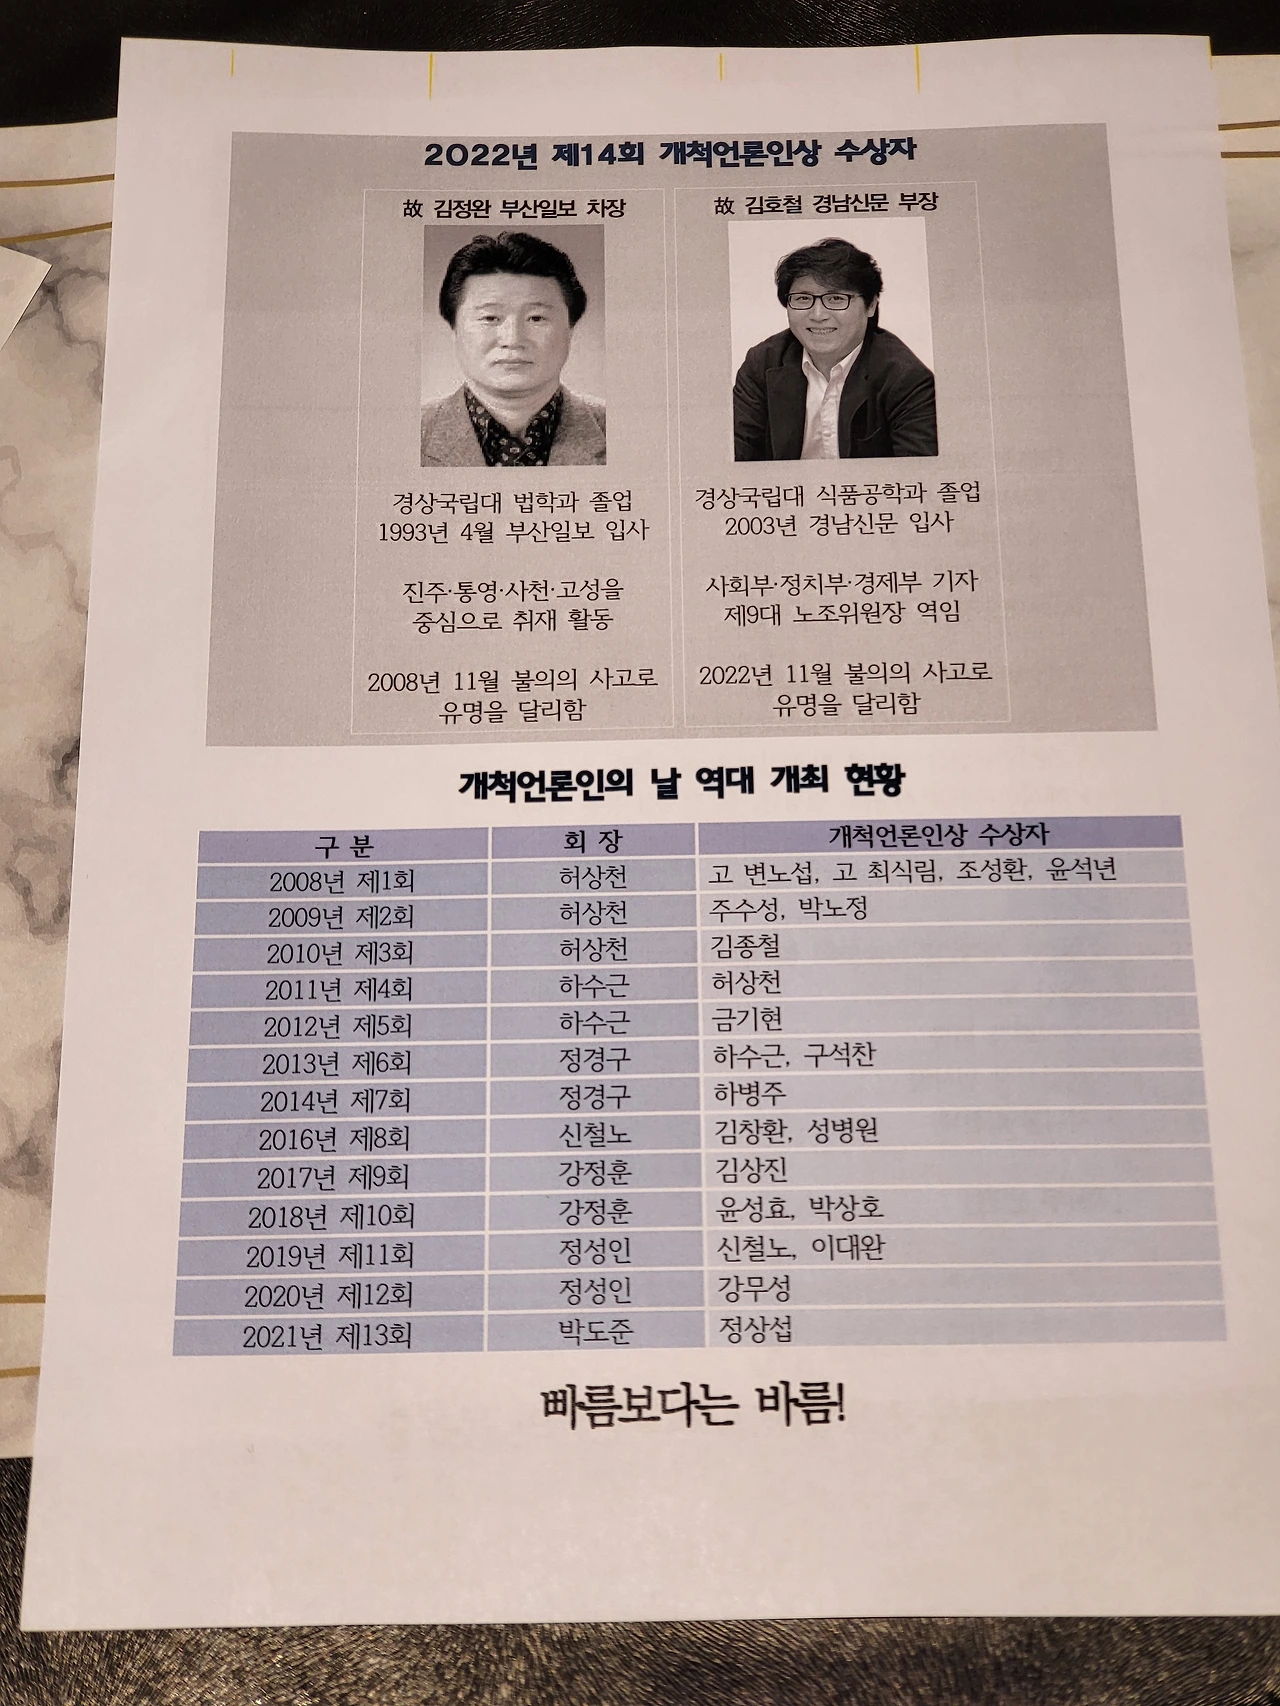 2022년 제14회 개척언론인상 수상자
故 김정완 부산일보 차장
경상국립대 법학과 졸업
1993년 4월 부산일보 입사
진주·통영·사천·고성을
중심으로 취재 활동
2008년 11월 불의의 사고로
유명을 달리함
故 김호철 경남신문 부장
경상국립대 식품공학과 졸업
2003년 경남신문 입사
사회부·정치부·경제부 기자
제9대 노조위원장 역임
2022년 11월 불의의 사고로
유명을 달리함
개척언론인의 날 역대 개최 현황
구 분 회 장 개척언론인상 수상자
2008년 제1회 허상천 고 변노섭, 고 최식림, 조성환, 윤석년
2009년 제2회 허상천 주수성, 박노정
2010년 제3회 허상천 김종철
2011년 제4회 하수근 허상천
2012년 제5회 하수근 금기현
2013년 제6회 정경구 하수근, 구석찬
2014년 제7회 정경구 하병주
2016년 제8회 신철노 김창환, 성병원
2017년 제9회 강정훈 김상진
2018년 제10회 강정훈 윤성효, 박상호
2019년 제11회 정성인 신철노, 이대완
2020년 제12회 정성인 강무성
2021년 제13회 박도준 정상섭
빠름보다는 바름!